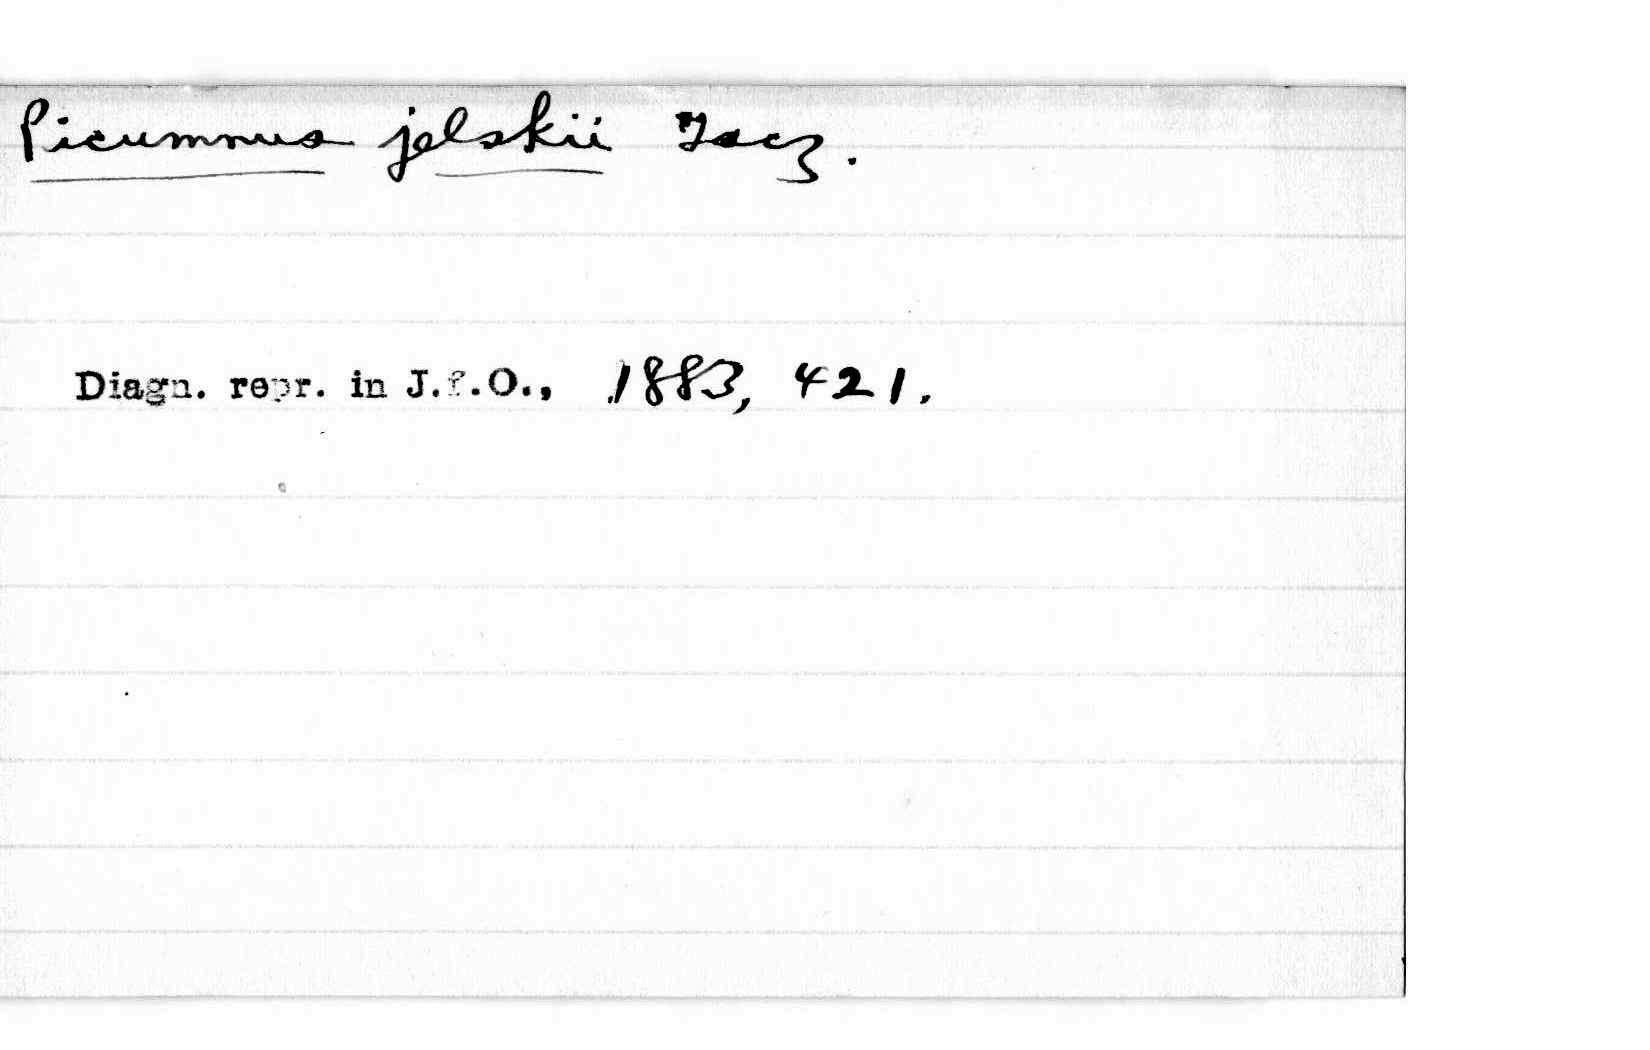 Picumnus jelskii Tacz.
Diagn. repr. in J.f.O., 1883, 421.